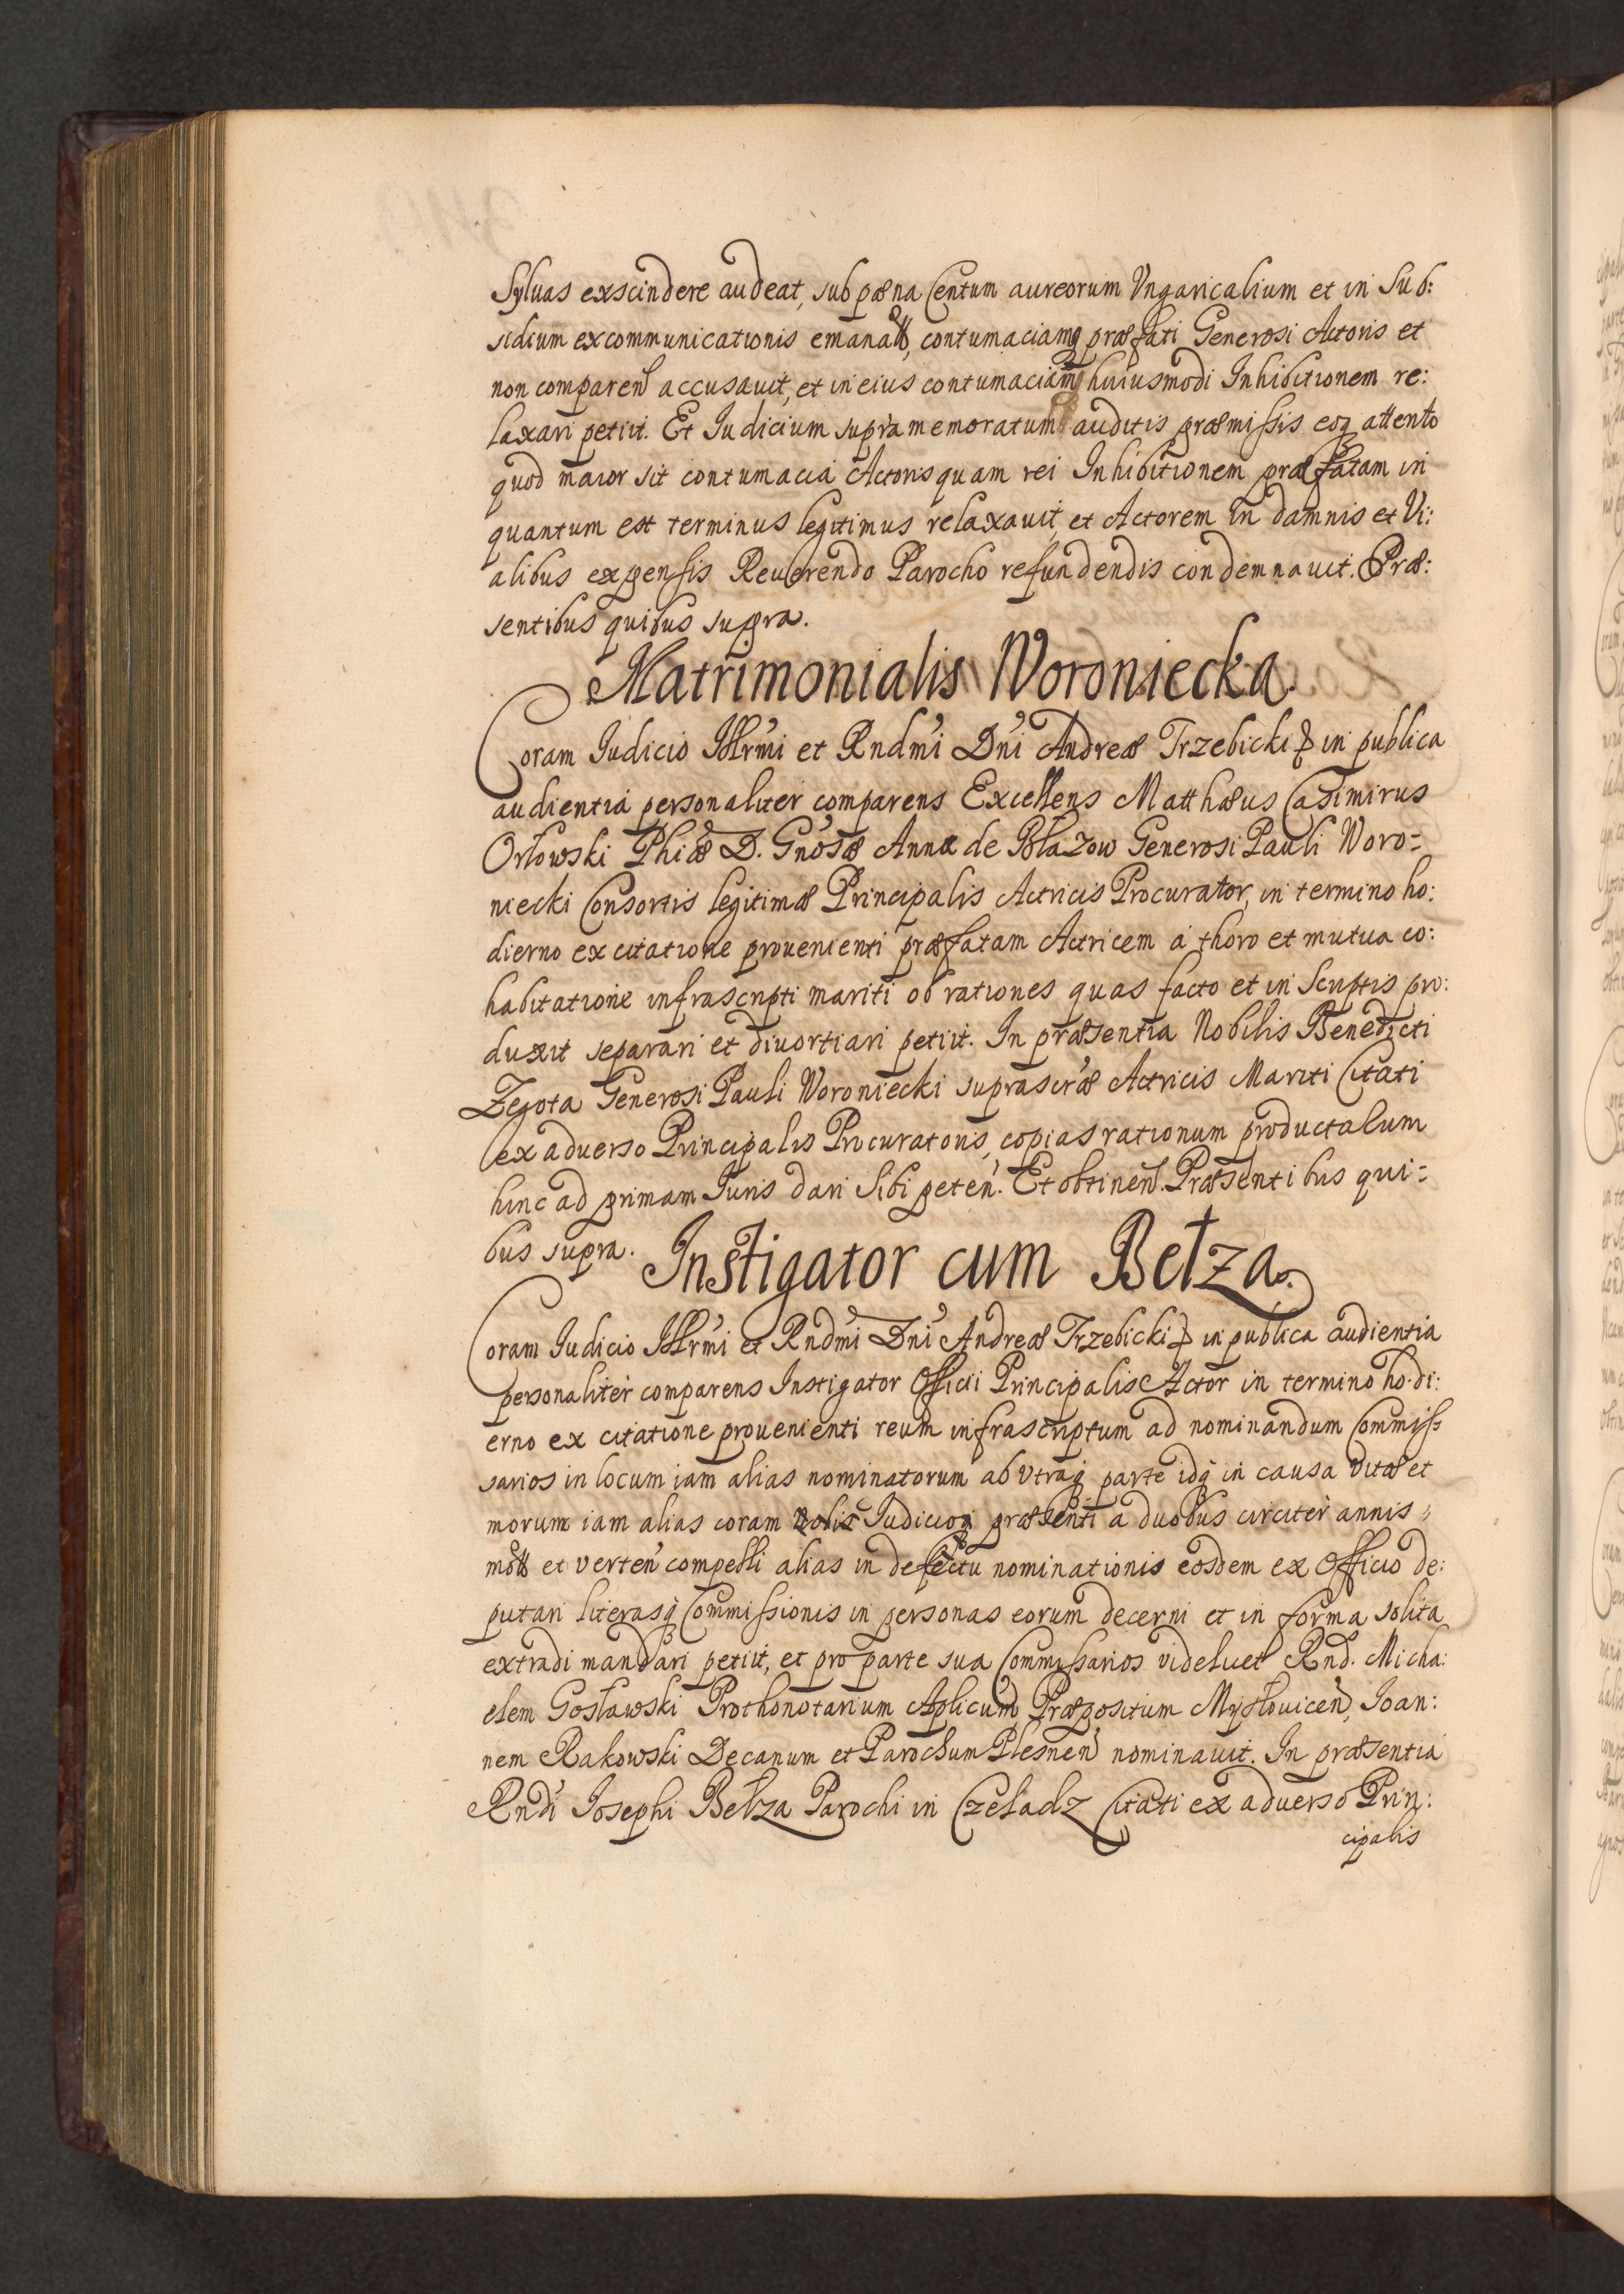 Syluas exscindere audeat, sub pœna Centum aureorum Vngaricalium et in Sub:
sidium excommunicationis emanatt, contumaciamq præfati Generosi Actoris et
non comparen accusauit, et in eius contumaciam huiusmodi Inhibitionem re:
laxari petiit. Et Iudicium supra memoratum auditis præmissis eoq attento
quod maior sit contumacia Actoris quam rei Inhibitionem præfatam in
quantum est terminus legitimus relaxauit, et Actorem in damnis et Vi:
alibus expensis Reuerendo Parocho refundendis condemnauit. Præ:
sentibus quibus supra.
Matrimonialis Woroniecka.
Coram Iudicio Illrmi et Rndmi Dni Andreæ Trzebicki in publica
audientia personaliter comparens Excellens Matthæus Casimirus
Orłowski Phiæ D. Gnosæ Annæ de Błazow Generosi Pauli Woro=
niecki Consortis legitimæ Principalis Actricis Procurator, in termino ho:
dierno ex citatione prouenienti præfatam Actricem a thoro et mutua co:
habitatione infrascripti mariti ob rationes quas facto et in Scriptis pro:
duxit separari et diuortiari petiit. In præsentia Nobilis Benedicti
Zegota Generosi Pauli Woroniecki suprascræ Actricis Mariti Citati
ex aduerso Principalis Procuratoris, copias rationum productarum
hinc ad primam Iuris dari sibi peten. Et obtinen. Præsentibus qui=
bus supra.
Instigator cum Bełza.
Coram Iudicio Illrmi et Rndmi Dni Andreæ Trzebicki in publica audientia
personaliter comparens Instigator Officii Principalis Actor in termino ho.di:
erno ex citatione prouenienti reum infrascriptum ad nominandum Commiss
sarios in locum iam alias nominatorum ab vtraq parte idq in causa vitæ et
morum iam alias coram Iudicioq præsenti a duobus circiter annis
mott et verten compelli alias in defectu nominationis eosdem ex Officio de:
putari literasq Commissionis in personas eorum decerni et in forma solita
extradi mandari petiit, et pro parte sua Commissarios videlicet Rnd. Micha:
elem Gosławski Prothonotarium Aplicum Præpositum Mysłouicen, Ioan:
nem Rakowski Decanum et Parochum Plesnen nominauit. In præsentia
Rndi Iosephi Bełza Parochi in Czeladz Citati ex aduerso Prin:
cipalis